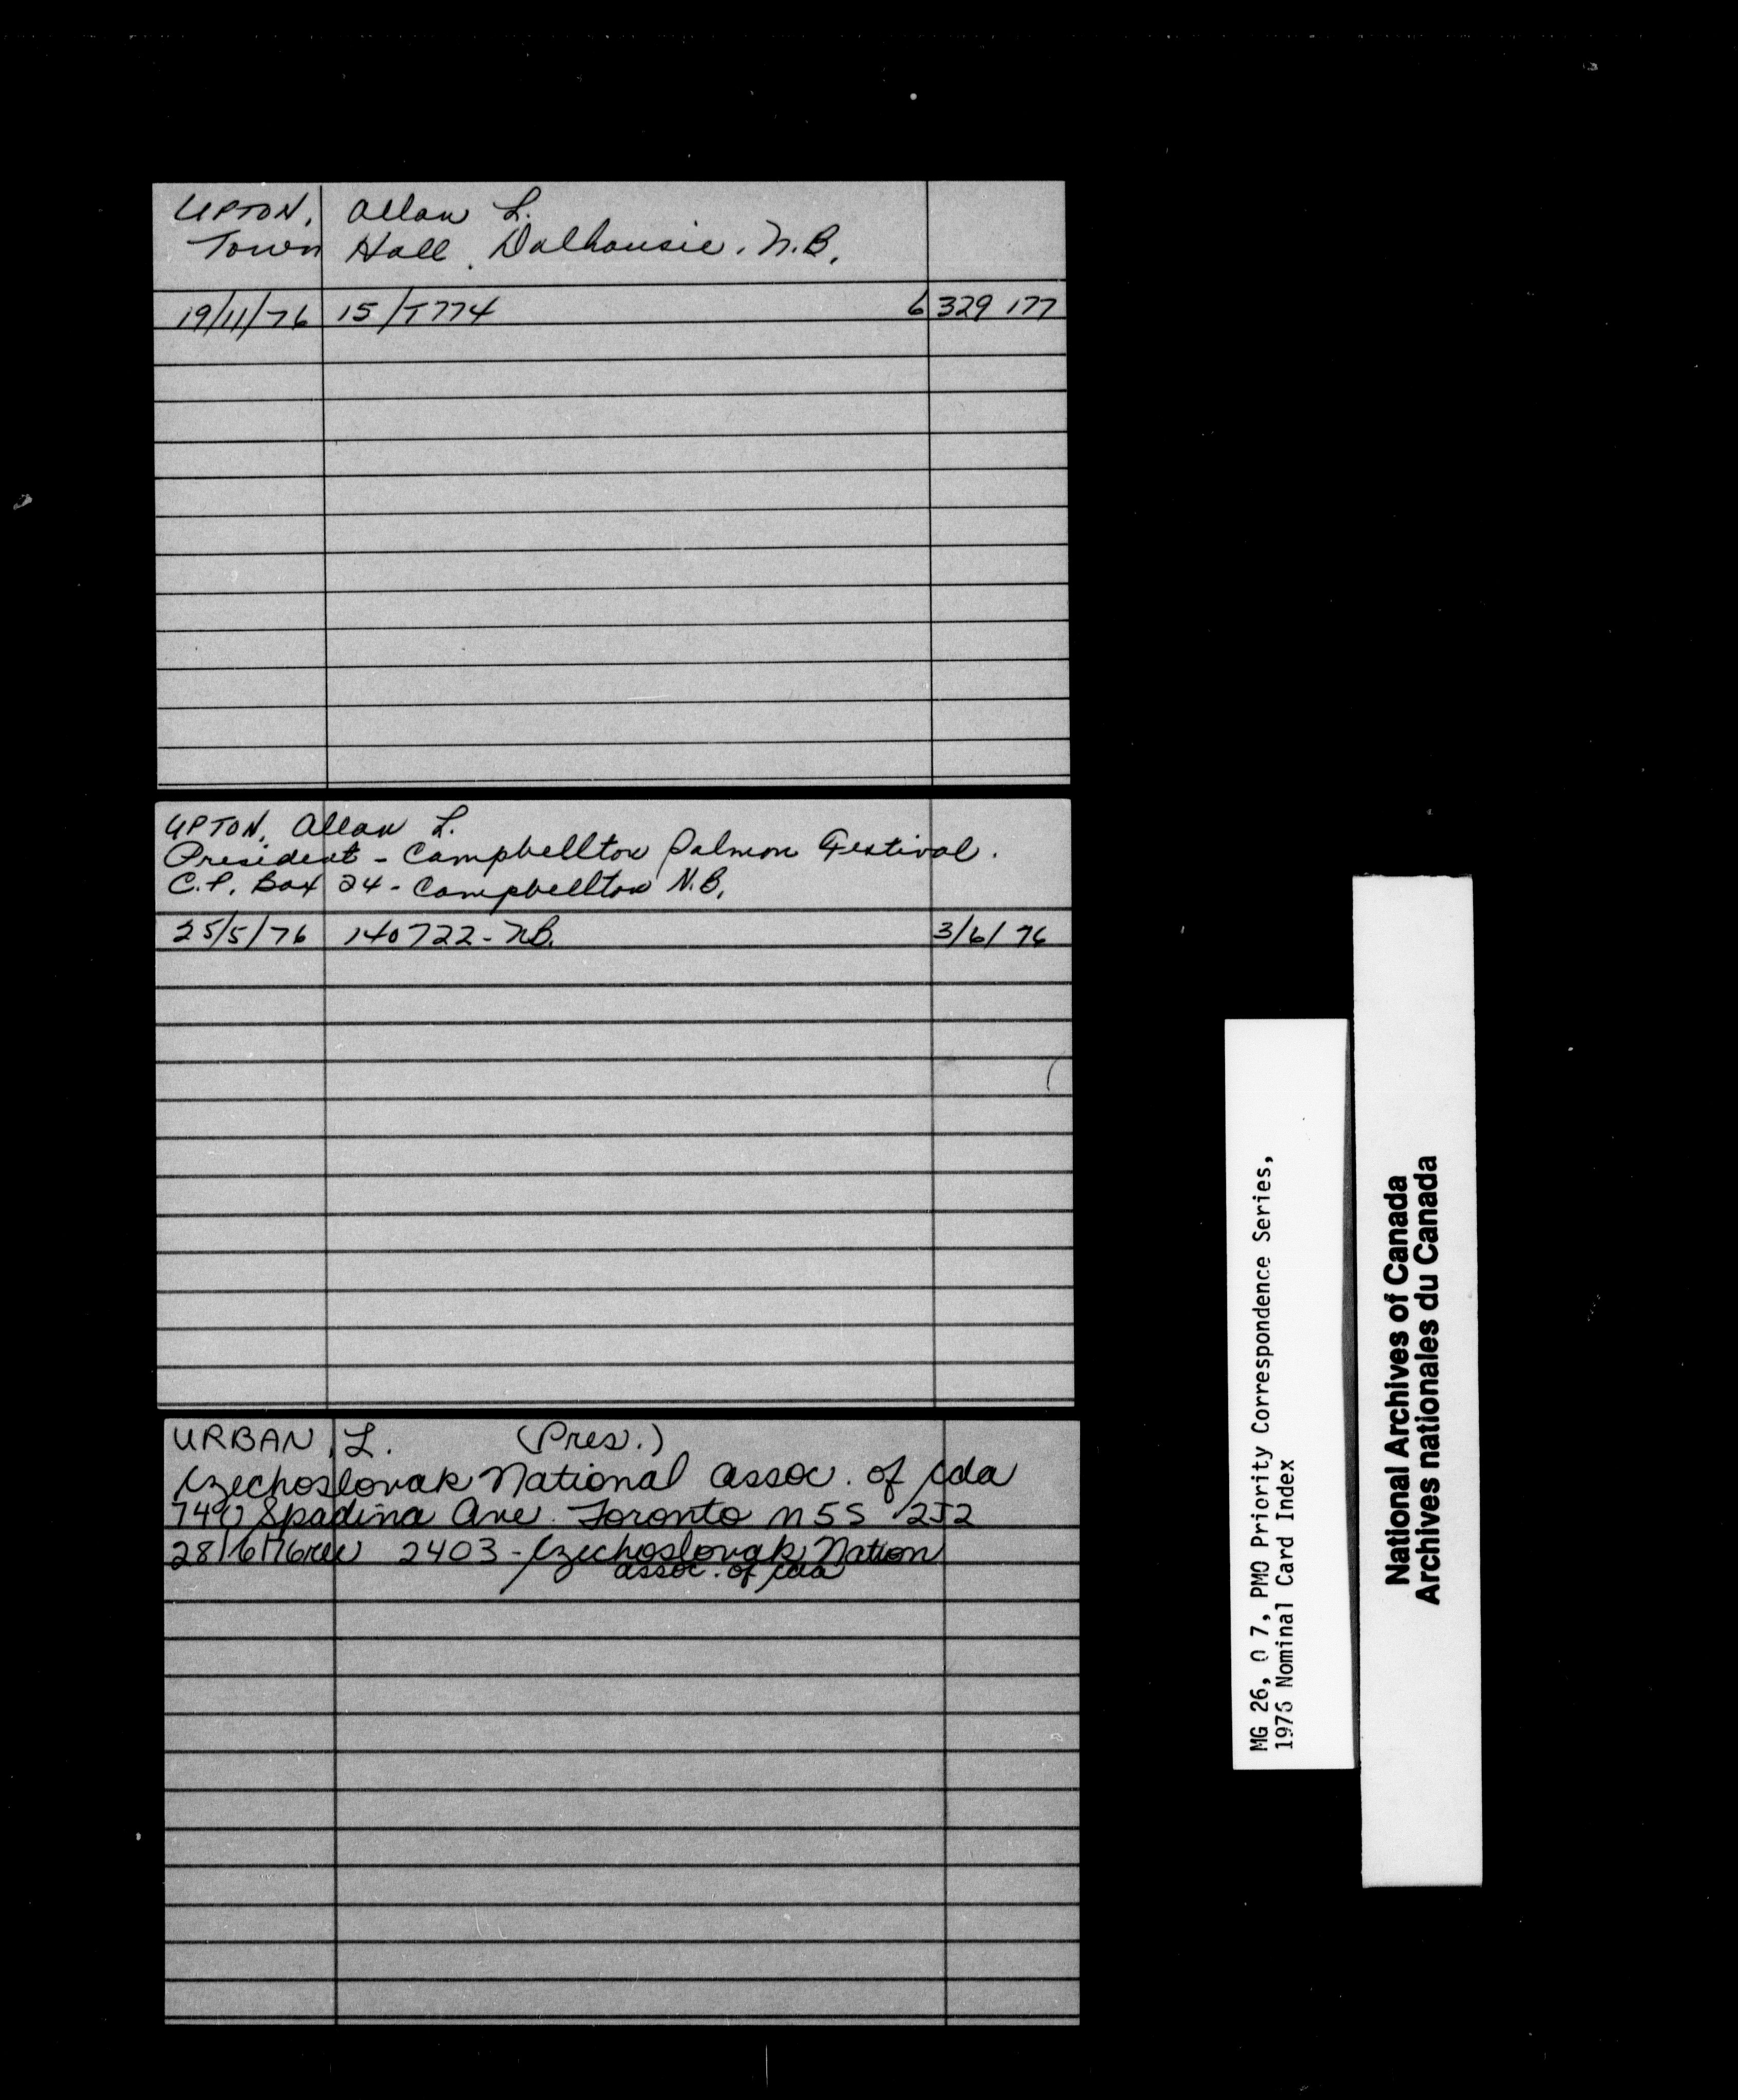 UPTON, Allan L.
Town Hall, Dalhousie, N.B.
19/11/76 15/T774 6 329 177
UPTON, Allan L.
President - Campbellton Salmon Festival.
C.P. Box 24 - Campbellton N.B.
25/5/76 140722-NB. 3/6/76
URBAN, L. (Pres.)
Czechoslovak National Assoc. of Cda
740 Spadina Ave. Toronto M5S 2J2
28/6/76 rec 2403 - Czechoslovak Nation
assoc. of Cda
MG 26, O 7, PMO Priority Correspondence Series,
1976 Nominal Card Index
National Archives of Canada
Archives nationales du Canada